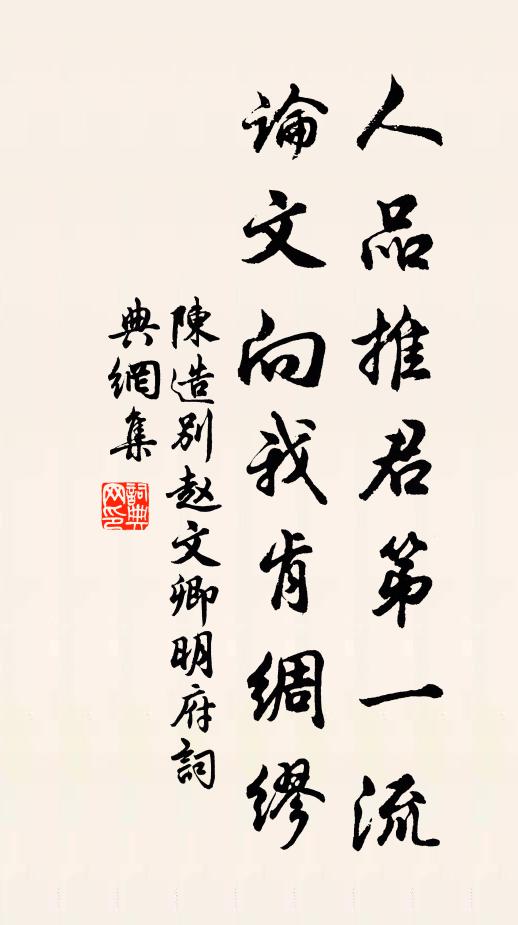 人品推君第一流
論文向我肯綢繆
陳造别赵文卿明府詞
典網集
詞典
网印